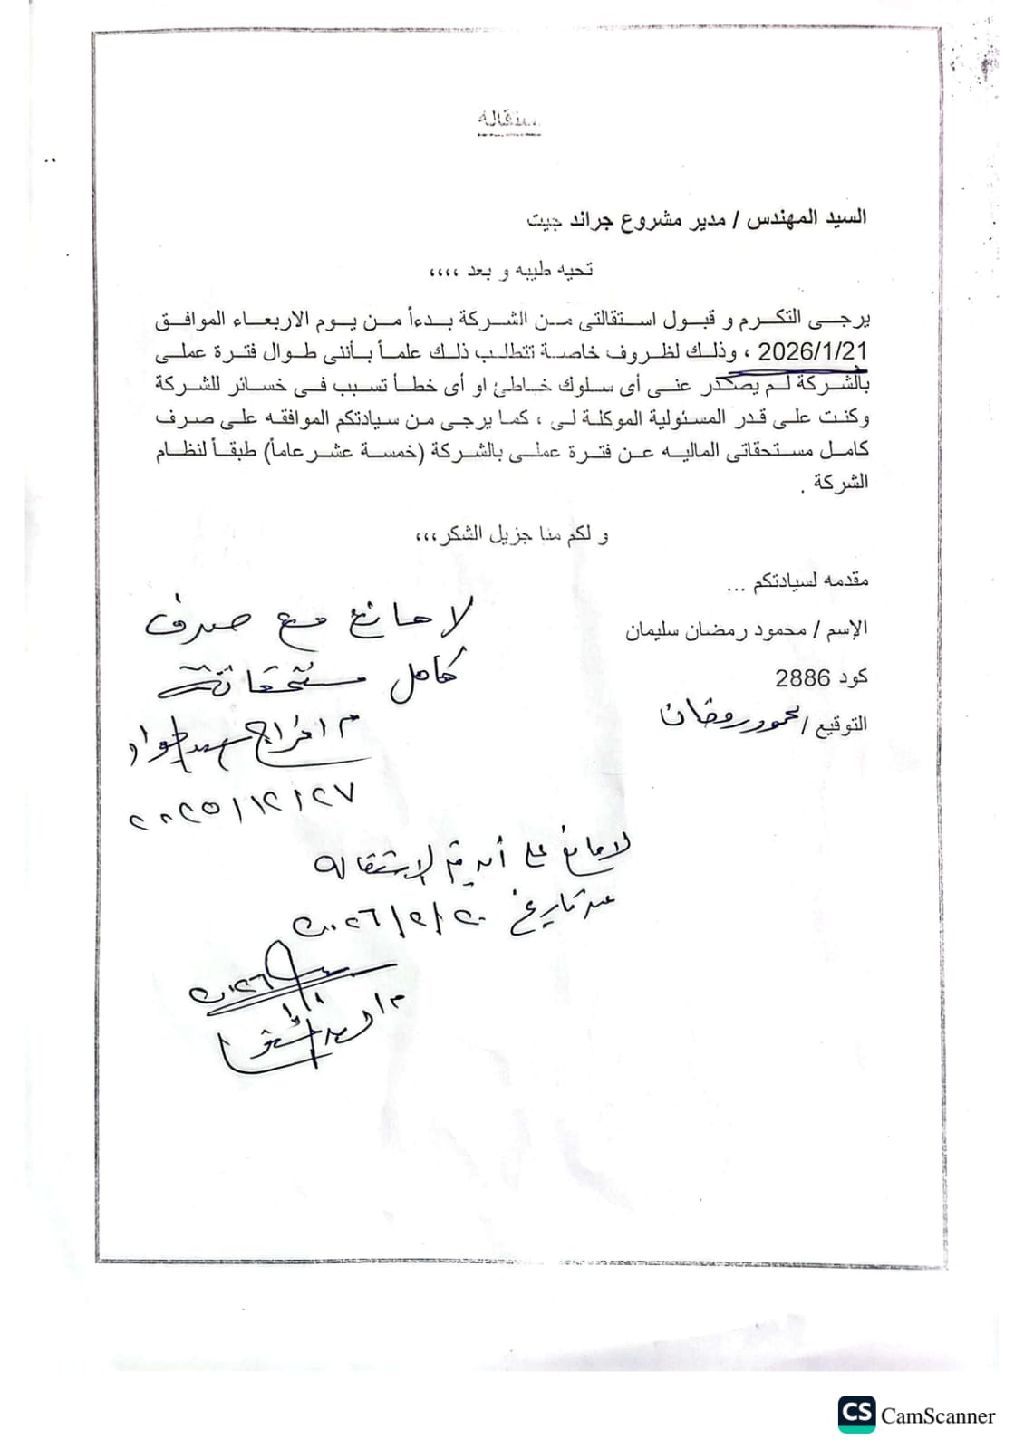 ستقاله
السيد المهندس / مدير مشروع جراند جيت
تحيه طيبه و بعد ،،،،
يرجى التكرم و قبول استقالتى من الشركة بدءاً من يوم الاربعاء الموافق
2026/1/21 ، وذلك لظروف خاصة تتطلب ذلك علماً بأننى طوال فترة عملى
بالشركة لم يصدر عنى أى سلوك خاطئ او أى خطأ تسبب فى خسائر للشركة
وكنت على قدر المسئولية الموكلة لى ، كما يرجى من سيادتكم الموافقه على صرف
كامل مستحقاتى الماليه عن فترة عملى بالشركة (خمسة عشر عاماً) طبقاً لنظام
الشركة .
و لكم منا جزيل الشكر،،،
مقدمه لسيادتكم ...
الإسم / محمود رمضان سليمان
كود 2886
التوقيع / محمود رمضان
لا مانع مع صرف
كامل مستحقاته
م /
٢٠٢٥/١٢/٢٧
لا مانع على أن يتم الاستقاله
عند تاريخ ٢٠٢٦/٢/٢٠
م /
CS CamScanner